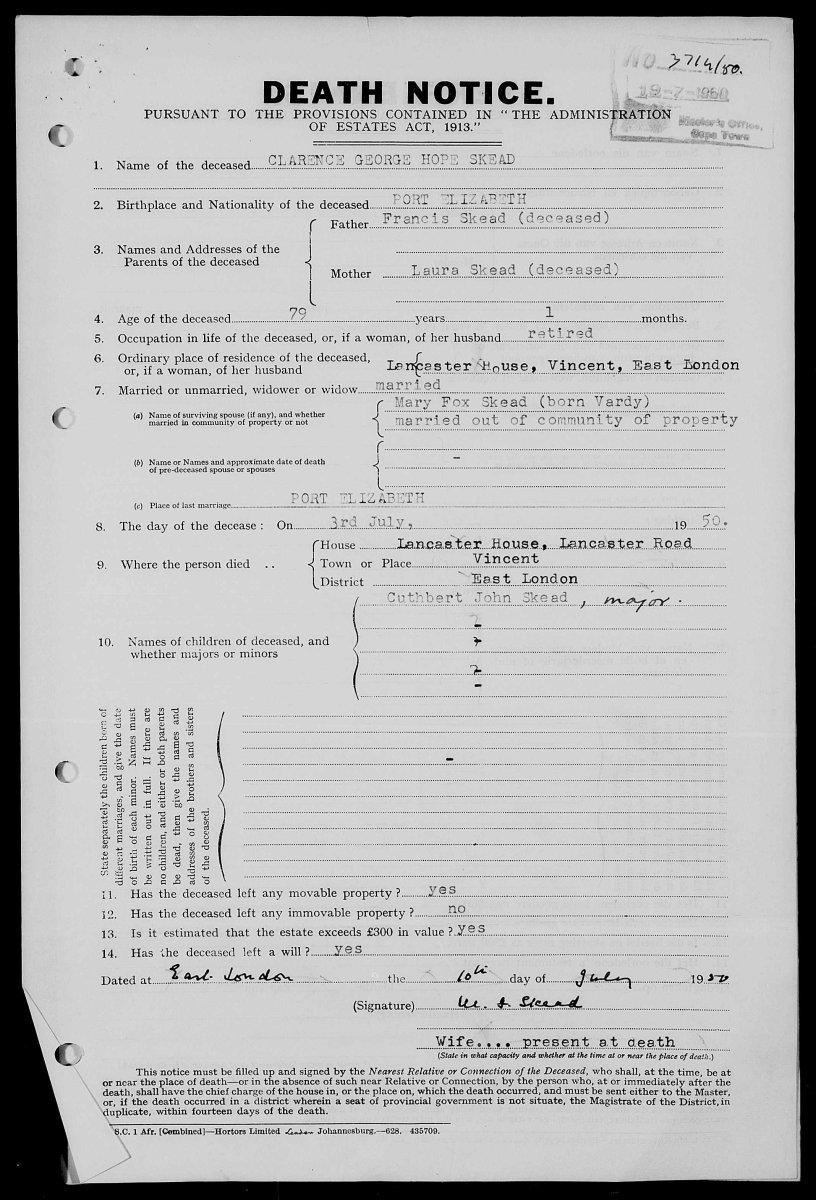 NO 3714/50.
19-7-1950
Master's Office,
Cape Town
DEATH NOTICE.
PURSUANT TO THE PROVISIONS CONTAINED IN “THE ADMINISTRATION
OF ESTATES ACT, 1913.”
1. Name of the deceased CLARENCE GEORGE HOPE SKEAD
2. Birthplace and Nationality of the deceased PORT ELIZABETH
Father Francis Skead (deceased)
3. Names and Addresses of the
Parents of the deceased
Mother Laura Skead (deceased)
4. Age of the deceased 79 years 1 months.
5. Occupation in life of the deceased, or, if a woman, of her husband retired
6. Ordinary place of residence of the deceased,
or, if a woman, of her husband Lancaster House, Vincent, East London
7. Married or unmarried, widower or widow married
(a) Name of surviving spouse (if any), and whether
married in community of property or not
Mary Fox Skead (born Vardy)
married out of community of property
(b) Name or Names and approximate date of death
of pre-deceased spouse or spouses
-
(c) Place of last marriage PORT ELIZABETH
8. The day of the decease : On 3rd July, 19 50.
House Lancaster House, Lancaster Road
9. Where the person died .. Town or Place Vincent
District East London
Cuthbert John Skead , major.
10. Names of children of deceased, and
whether majors or minors
State separately the children born of
different marriages, and give the date
of birth of each minor. Names must
be written out in full. If there are
no children, and either or both parents
be dead, then give the names and
addresses of the brothers and sisters
of the deceased.
-
11. Has the deceased left any movable property ? yes
12. Has the deceased left any immovable property ? no
13. Is it estimated that the estate exceeds £300 in value ? yes
14. Has the deceased left a will ? yes
Dated at East London the 10th day of July 19 50
(Signature) M. F. Skead
Wife.... present at death
(State in what capacity and whether at the time at or near the place of death.)
This notice must be filled up and signed by the Nearest Relative or Connection of the Deceased, who shall, at the time, be at
or near the place of death—or in the absence of such near Relative or Connection, by the person who, at or immediately after the
death, shall have the chief charge of the house in, or the place on, which the death occurred, and must be sent either to the Master,
or, if the death occurred in a district wherein a seat of provincial government is not situate, the Magistrate of the District, in
duplicate, within fourteen days of the death.
S.C. 1 Afr. [Combined]—Hortors Limited Johannesburg.—628. 435709.